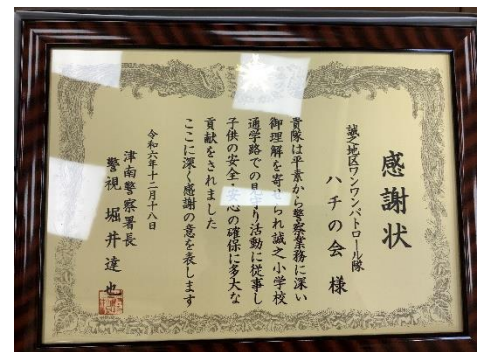 感謝状
誠之地区ワンワンパトロール隊
ハチの会 様
貴隊は平素から警察業務に深い
御理解を寄せられ誠之小学校
通学路での見守り活動に従事し
子供の安全・安心の確保に多大な
貢献をされました
ここに深く感謝の意を表します
令和六年十二月十八日
津南警察署長
警視 堀井達也